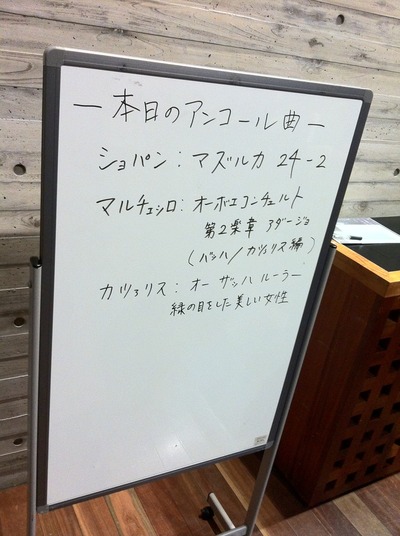 ー本日のアンコール曲ー
ショパン：マズルカ 24-2
マルチェッロ：オーボエコンチェルト
第2楽章 アダージョ
(バッハ/カツァリス編)
カツァリス：オー ザッハ ルーラー
緑の目をした美しい女性